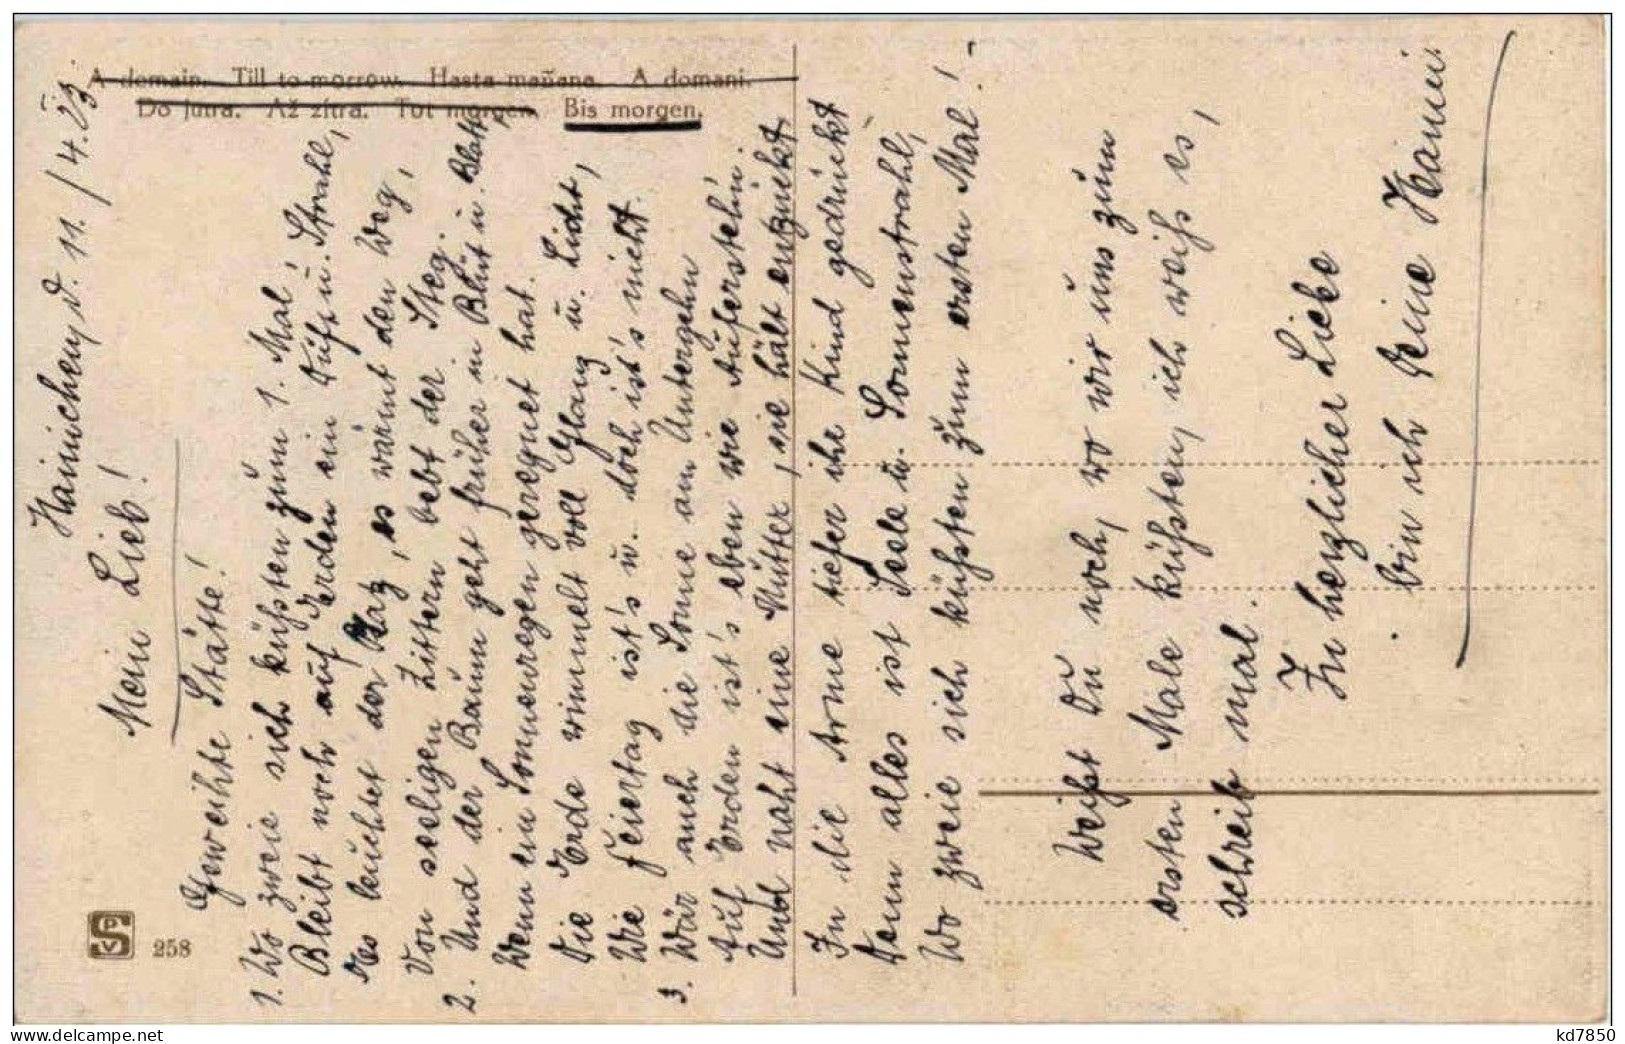 A domain. Till to-morrow. Hasta mañana. A domani.
Do jutra. Až zítra. Tot morgen. Bis morgen.
Hainichen, d. 11./4.23.
Mein Lieb!
Geweihte Stätte!
1. Wo zweie sich küßten zum 1. Mal,
Bleibt noch auf Erden ein Duft u. Strahl,
Es leuchtet der Platz, es wärmt den Weg,
Von seeligen Zittern bebt der Steg.
2. Und der Baum geht früher in Blüt u. Blatt,
Wenn ein Sonnenregen geregnet hat.
Die Erde wimmelt voll Glanz u. Licht,
Wie Feiertag ist's u. doch ist's nicht.
3. Wär auch die Sonne am Untergehn
Auf Erden ist's eben wie Auferstehn.
Und naht eine Mutter, sie hält entzückt
In die Arme tiefer ihr Kind gedrückt
Denn alles ist Seele u. Sonnenstrahl,
Wo zweie sich küßten zum ersten Mal!
Weißt Du noch, wo wir uns zum
ersten Male küßten, ich weiß es,
schreib mal.
In herzlicher Liebe
bin ich Deine Hanni
SPV
258
kd7850